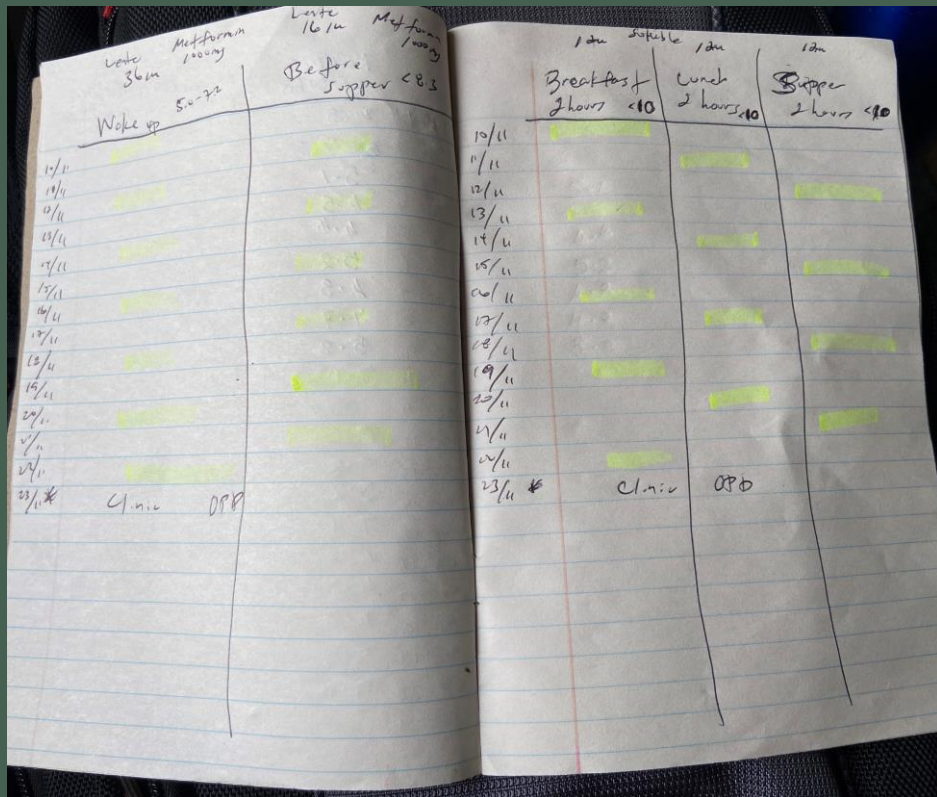 Lente Metformin
36u 1000mg
5.0-7.2
Woke up
Lente Metformin
16iu 1000mg
Before
supper <8.3
10/11
11/11
12/11
13/11
14/11
15/11
16/11
17/11
18/11
19/11
20/11
21/11
22/11
23/11 *
Clinic OPD
soluble
12u 12u 12u
Breakfast
2 hours <10
Lunch
2 hours <10
Supper
2 hours <10
10/11
11/11
12/11
13/11
14/11
15/11
16/11
17/11
18/11
19/11
20/11
21/11
22/11
23/11 * Clinic OPD